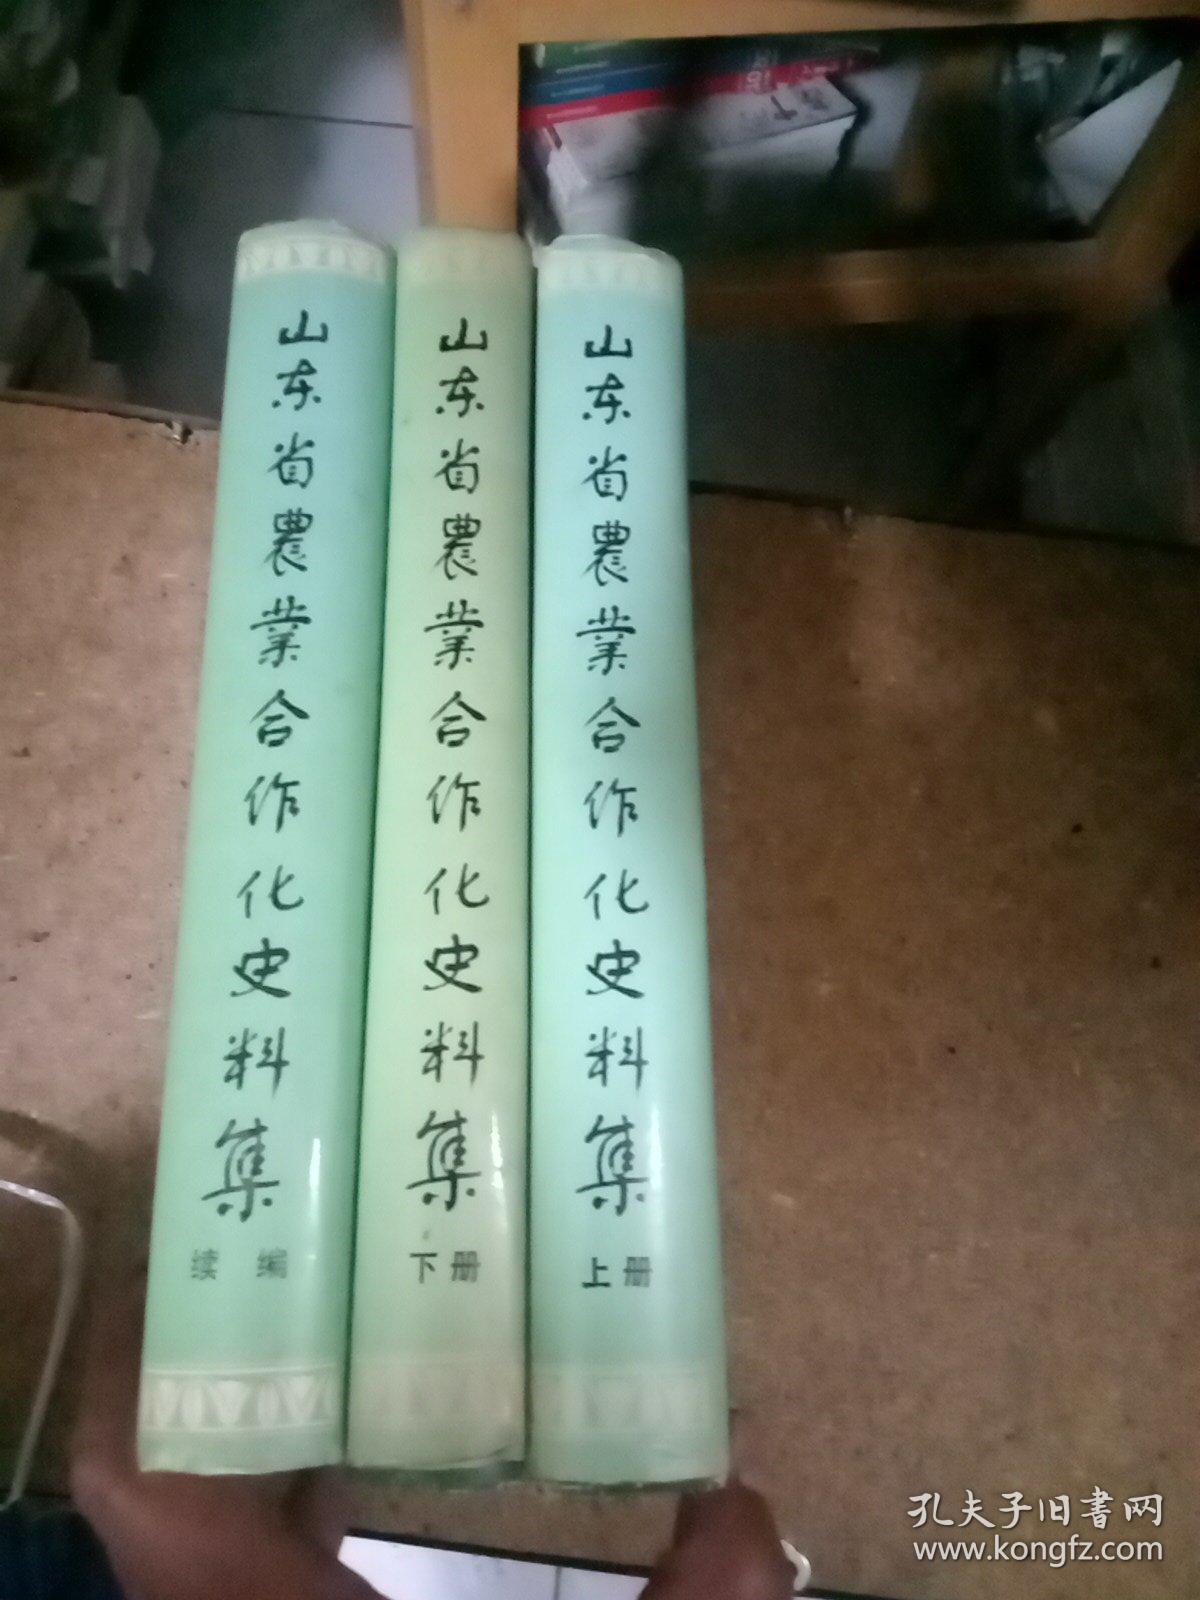 山东省農業合作化史料集
续编
山东省農業合作化史料集
下册
山东省農業合作化史料集
上册
孔夫子旧書网
www.kongfz.com